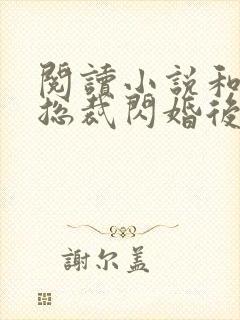 閱讀小說和
總裁閃婚後
謝尔盖